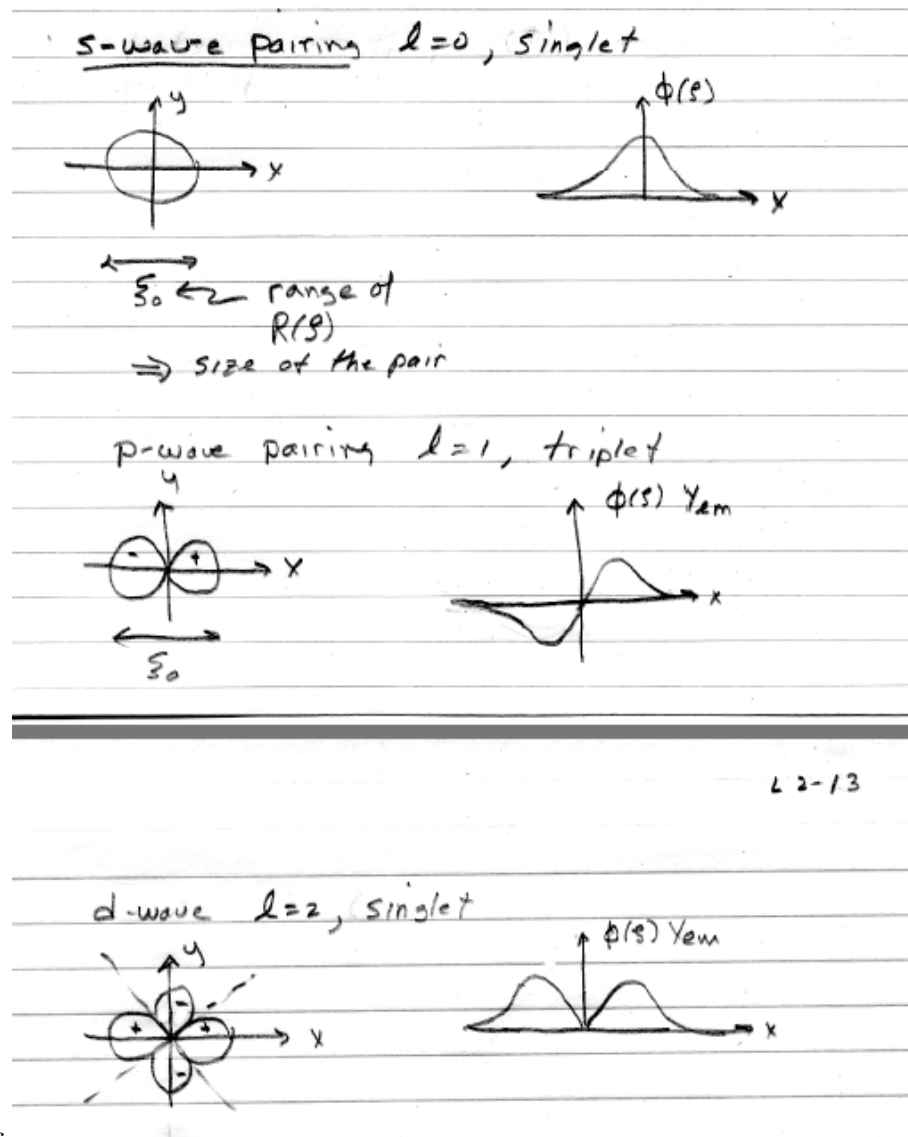 s-wave pairing l=0, singlet
y
ϕ(ρ)
x
x
ξ₀ ← range of
R(ρ)
⇒ size of the pair
p-wave pairing l=1, triplet
y
ϕ(ρ) Yℓm
- +
x
x
ξ₀
L 2-13
d-wave l=2, singlet
y
ϕ(ρ) Yℓm
-
+ +
x
x
-